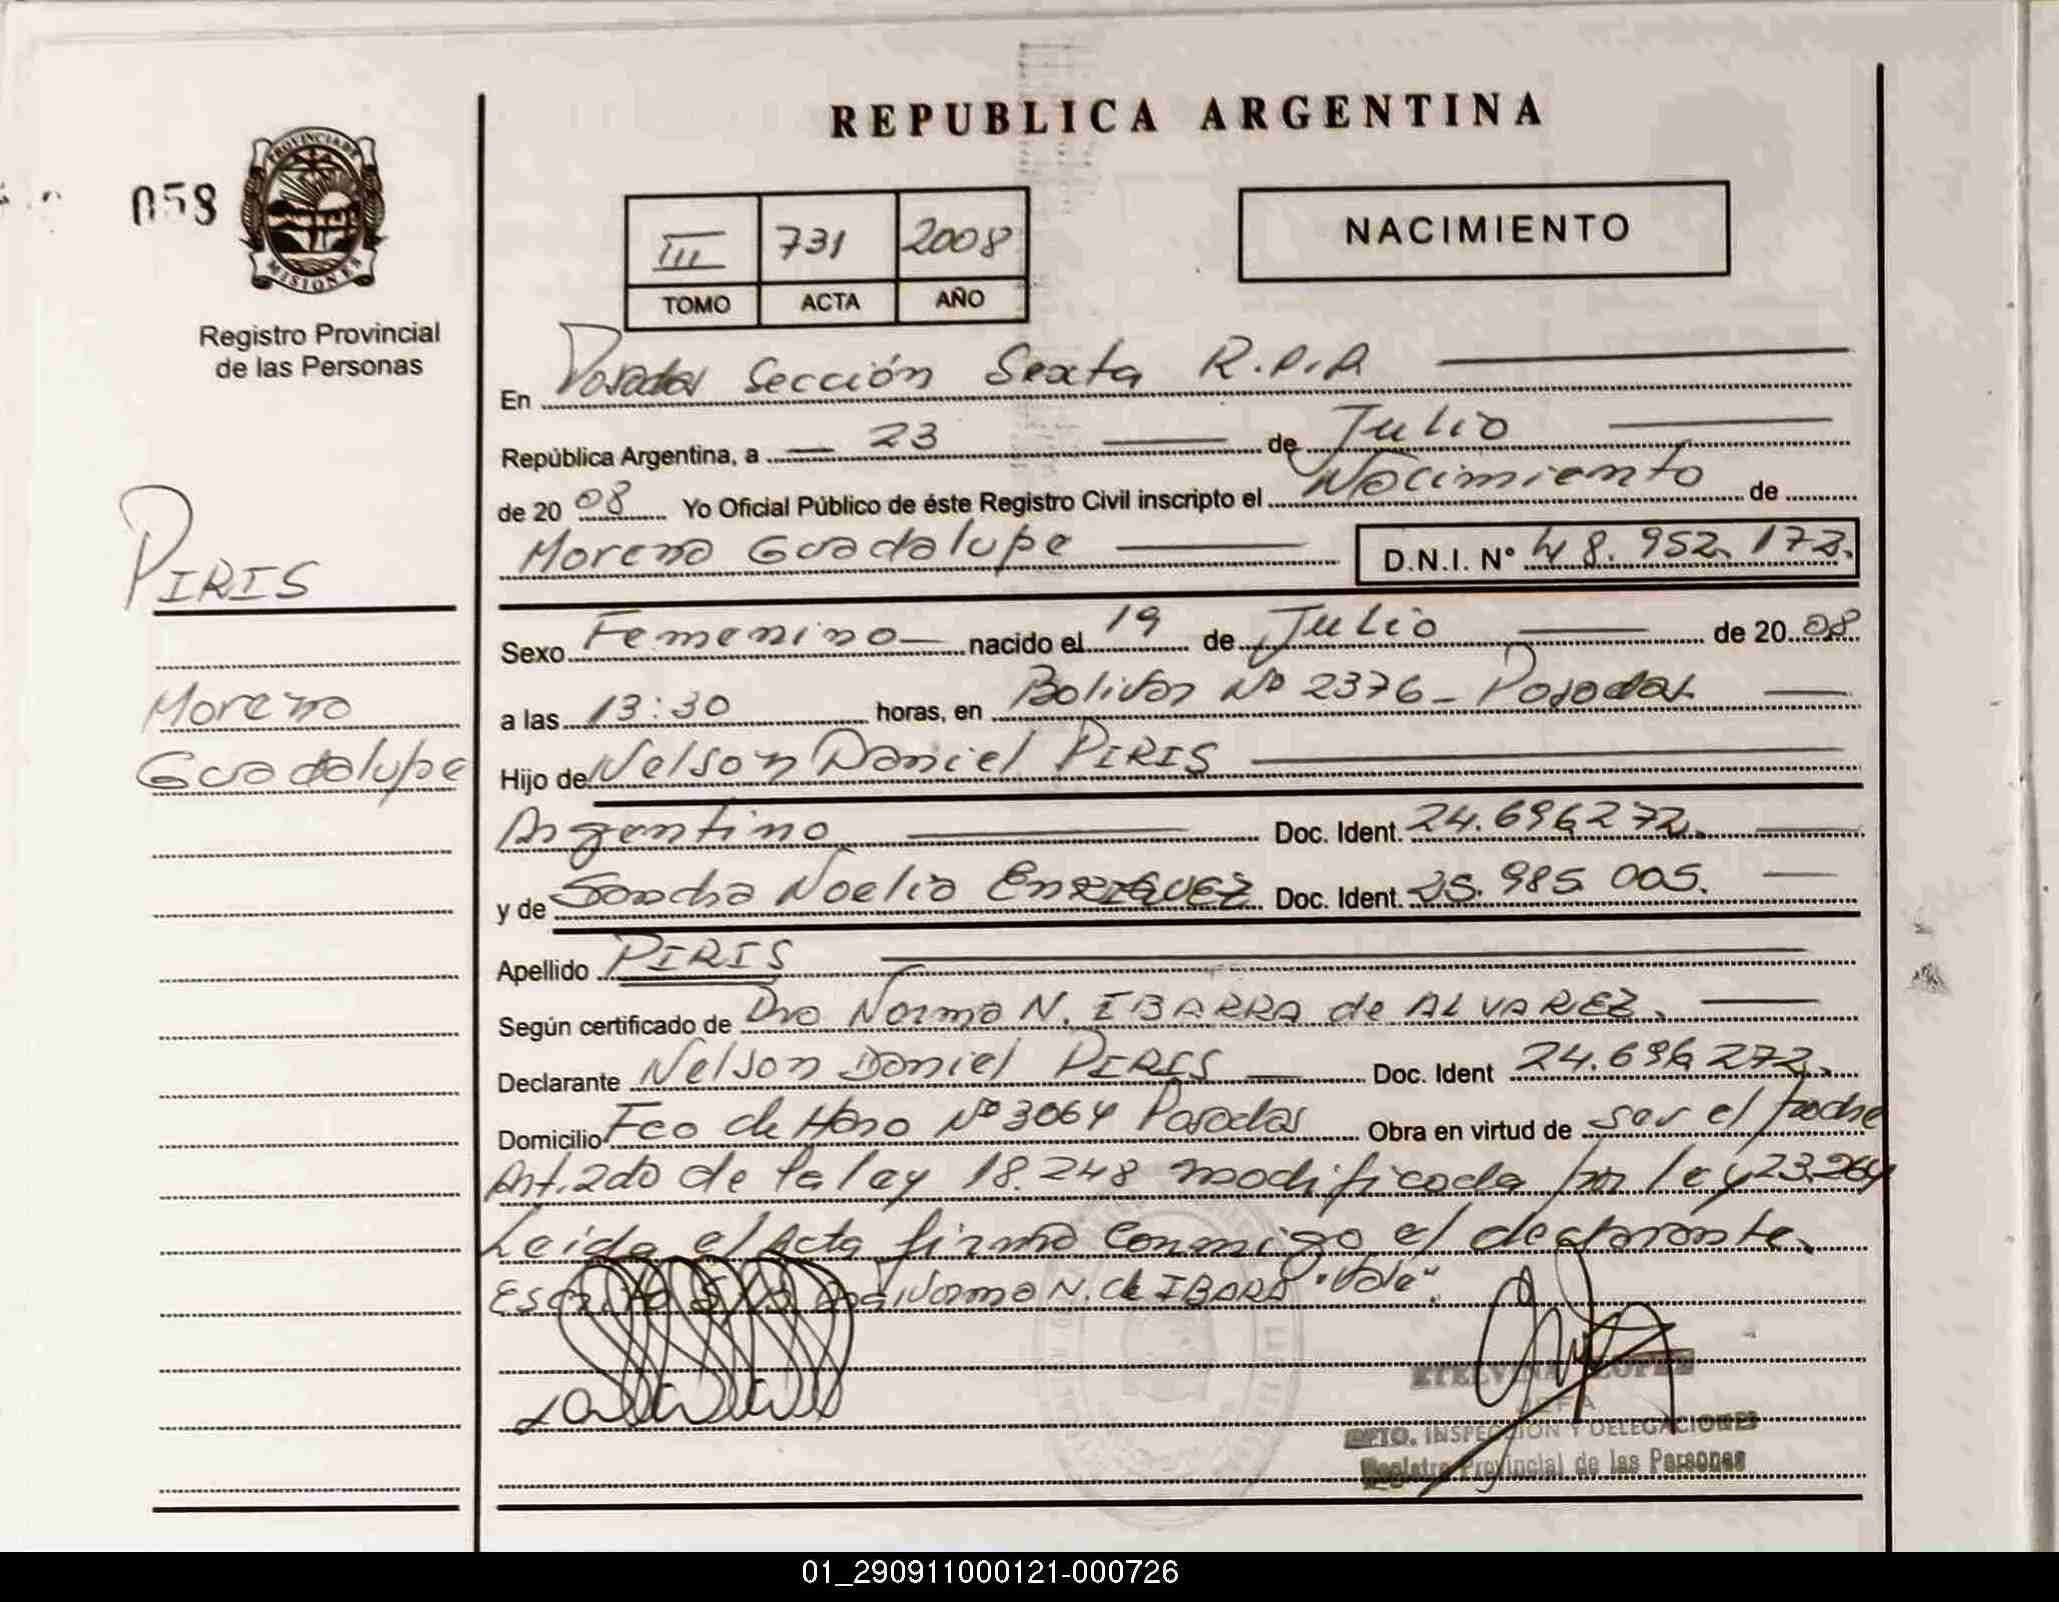 REPUBLICA ARGENTINA
058
PROVINCIA DE
MISIONES
Registro Provincial
de las Personas
III 731 2008
TOMO ACTA AÑO
NACIMIENTO
En Posadas Sección Sexta R.P.P
República Argentina, a 23 de Julio
de 2008 Yo Oficial Público de éste Registro Civil inscripto el Nacimiento de
Morena Guadalupe D.N.I. N° 48.952.172.
PIRIS
Morena
Guadalupe
Sexo Femenino nacido el 19 de Julio de 2008
a las 13:30 horas, en Bolivar Nº 2376 - Posadas
Hijo de Nelson Daniel PIRIS
Argentino Doc. Ident. 24.696272.
y de Sandra Noelia ENRIQUEZ Doc. Ident. 25.985.005.
Apellido PIRIS
Según certificado de Dra Norma N. IBARRA de ALVAREZ.
Declarante Nelson Daniel PIRIS Doc. Ident 24.696.272.
Domicilio Fco de Haro Nº 3064 Posadas Obra en virtud de ser el padre
Art. 2do de la ley 18.248 modificada por ley 23.264
Leida el Acta firma conmigo el declarante.
Norma N. de IBARRA "Vale".
ETELVINA LOPEZ
JEFA
DPTO. INSPECCION Y DELEGACIONES
Registro Provincial de las Personas
01_290911000121-000726